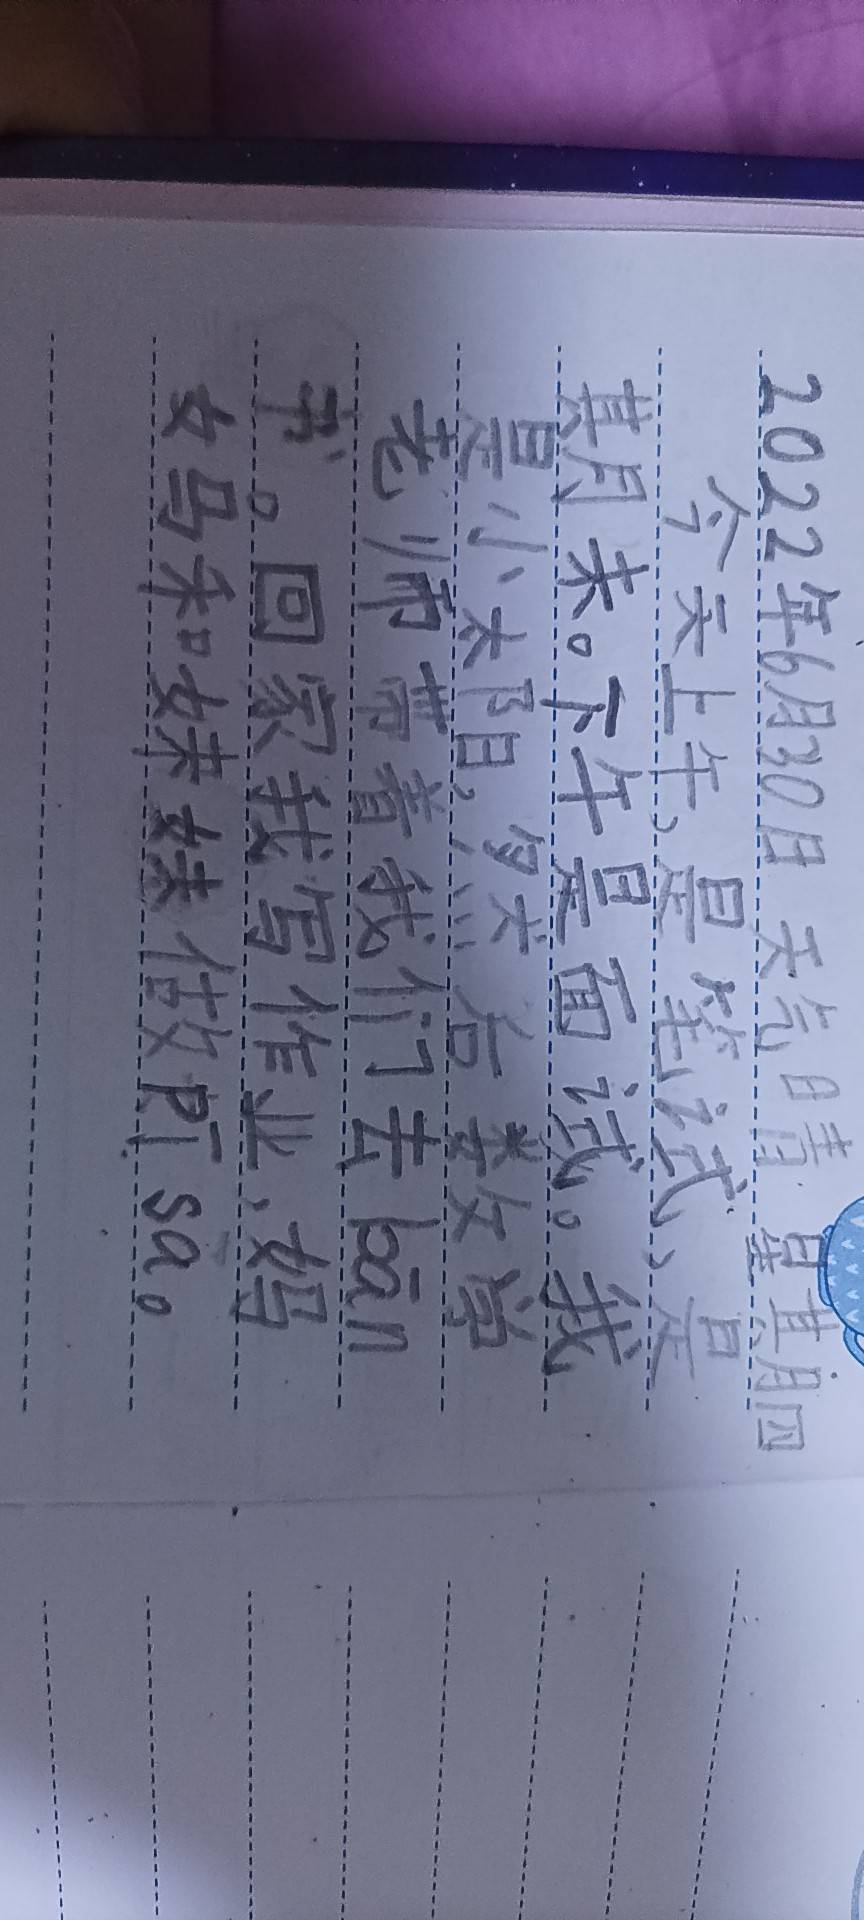 2022年6月30日 天气晴 星期四
今天上午,是笔试、是
期末。下午是面试。我
是小太阳,然后数学
老师带着我们去bān
书。回家我写作业,妈
妈和妹妹做pī sà。